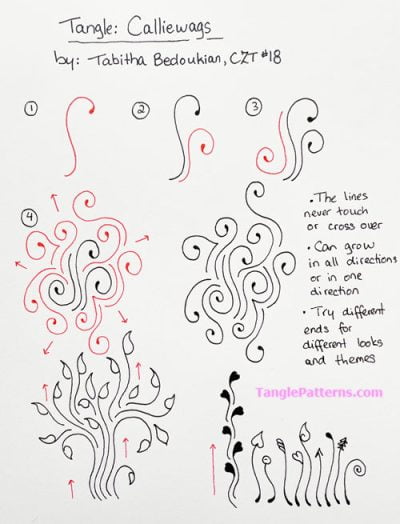 Tangle: Calliewags
by: Tabitha Bedoukian, CZT #18
1
2
3
4
• The lines
never touch
or cross over
• Can grow
in all directions
or in one
direction
• Try different
ends for
different looks
and themes
TanglePatterns.com